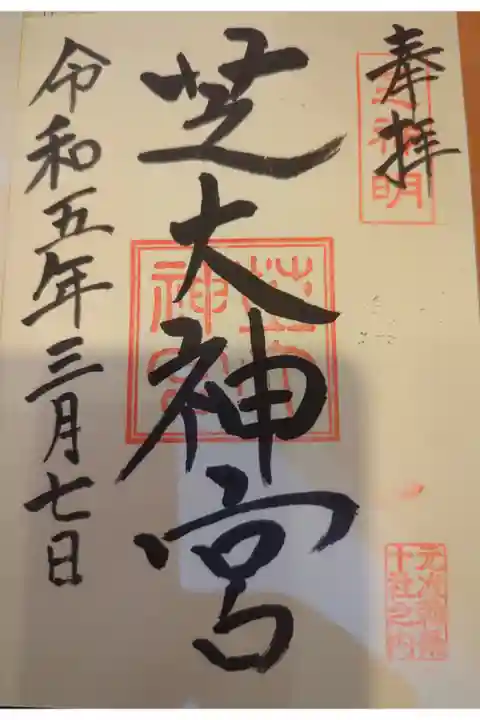 奉拝
芝大神宮
令和五年三月七日
芝神明
芝大神宮
元准勅祭
十社之内